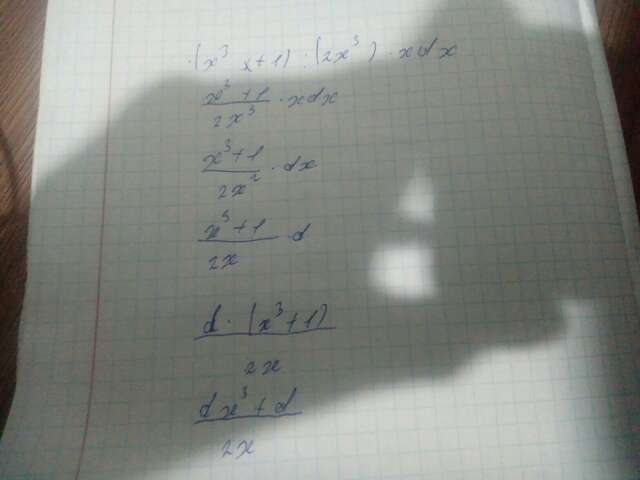 ·(x³ x+1) : (2x³) · xdx
x³+1/2x³ · xdx
x³+1/2x² · dx
x³+1/2x · d
d · (x³+1)/2x
dx³+d/2x